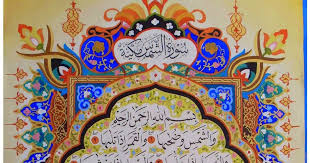 سُورَةُ الشَّمْسِ مَكِّيَّة
بِسْمِ اللهِ الرَّحْمٰنِ الرَّحِيمِ
وَالشَّمْسِ وَضُحٰىهَا وَالْقَمَرِ اِذَا تَلٰىهَا